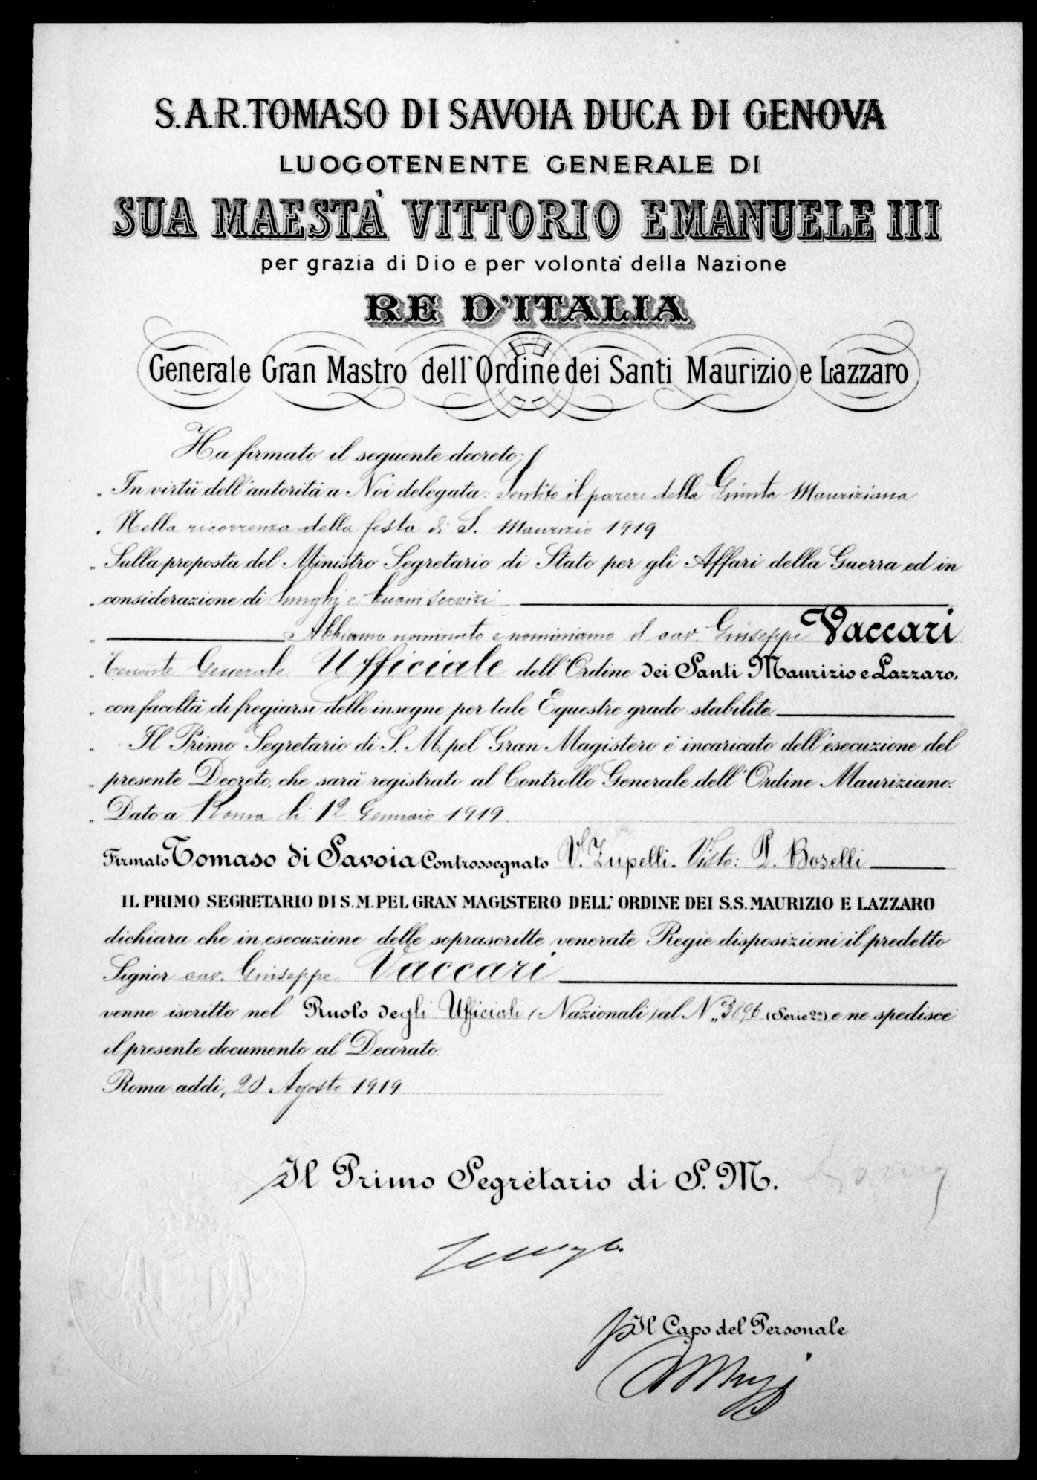 S.A.R. TOMASO DI SAVOIA DUCA DI GENOVA
LUOGOTENENTE GENERALE DI
SUA MAESTÀ VITTORIO EMANUELE III
per grazia di Dio e per volontà della Nazione
RE D'ITALIA
Generale Gran Mastro dell'Ordine dei Santi Maurizio e Lazzaro
Ha firmato il seguente decreto:
„ In virtù dell'autorità a Noi delegata: Sentito il parere della Giunta Mauriziana
„ Nella ricorrenza della festa di S. Maurizio 1919
„ Sulla proposta del Ministro Segretario di Stato per gli Affari della Guerra ed in
„ considerazione di lunghi e buoni servizi
„ Abbiamo nominato e nominiamo il cav. Giuseppe Vaccari
Tenente Generale Ufficiale dell'Ordine dei Santi Maurizio e Lazzaro,
„ con facoltà di fregiarsi delle insegne per tale Equestre grado stabilite
„ Il Primo Segretario di S. M. pel Gran Magistero è incaricato dell'esecuzione del
„ presente Decreto, che sarà registrato al Controllo Generale dell'Ordine Mauriziano.
„ Dato a Roma li 12 Gennaio 1919.
Firmato Tomaso di Savoia Controssegnato V. Zupelli. Visto: P. Boselli
IL PRIMO SEGRETARIO DI S. M. PEL GRAN MAGISTERO DELL'ORDINE DEI S.S. MAURIZIO E LAZZARO
dichiara che in esecuzione delle soprascritte venerate Regie disposizioni il predetto
Signor cav. Giuseppe Vaccari
venne iscritto nel Ruolo degli Ufficiali (Nazionali) al N.„ (Serie 2ª) e ne spedisce
il presente documento al Decorato.
Roma addì, 20 Agosto 1919
Il Primo Segretario di S. M.
Il Capo del Personale